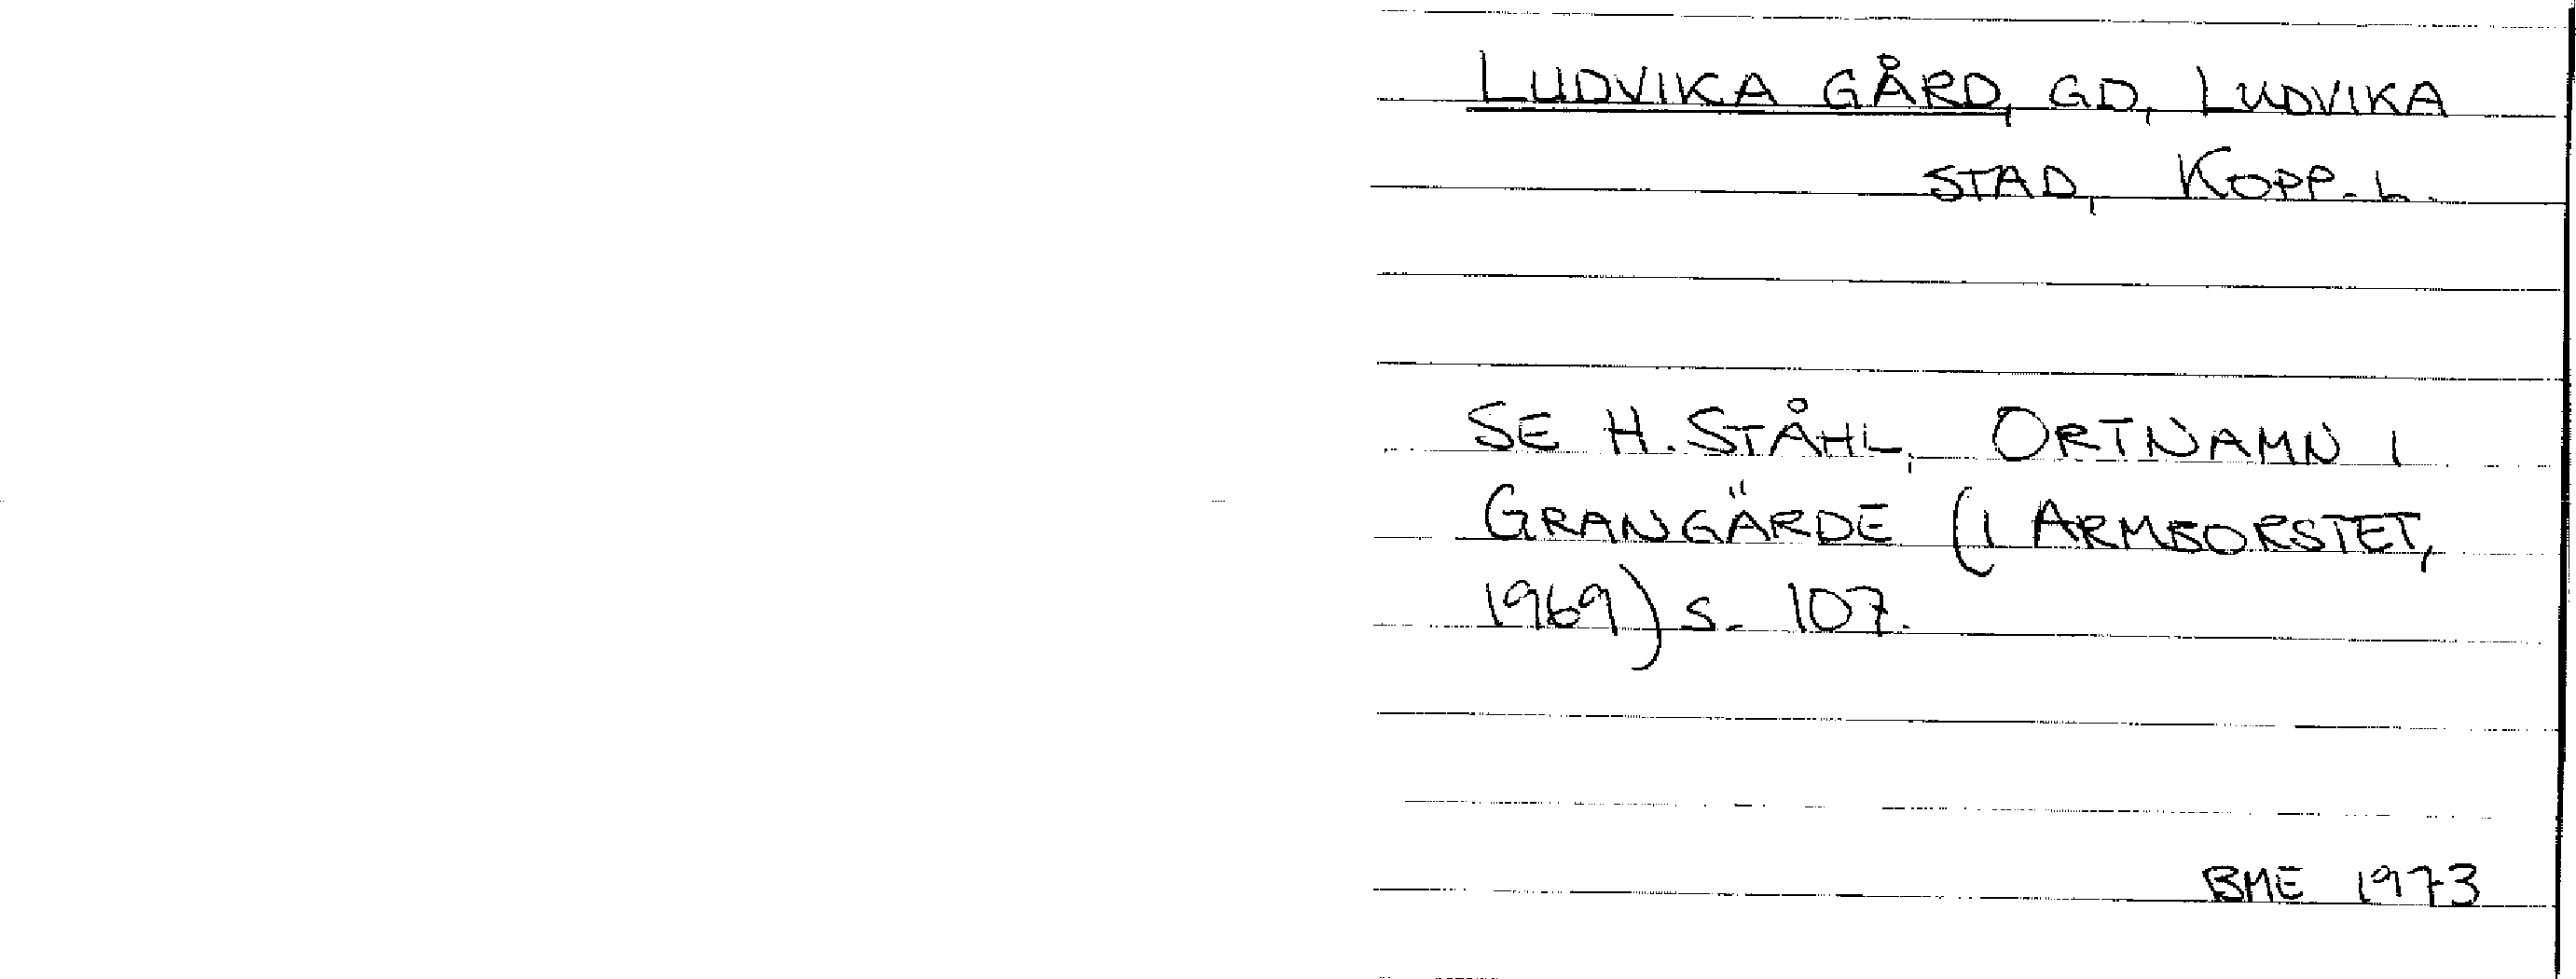 LUDVIKA GÅRD, GD, LUDVIKA
STAD, KOPP. L.
SE H. STÅHL, ORTNAMN I
GRANGÄRDE (I ARMBORSTET,
1969) S. 107.
BME 1973